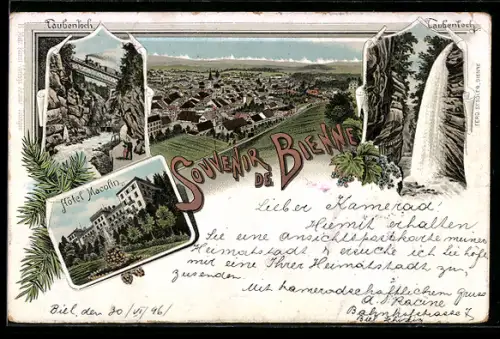 Taubenloch
Taubenloch
SOUVENIR
DE BIENNE
Hôtel Macolin
Lieber Kamerad!
Hiemit erhalten
Sie eine Ansichtspostkarte meiner
Heimatstadt & ersuche ich Sie höfl.
mir eine Ihrer Heimatstadt zu-
zusenden.
Mit kameradschaftlichem Gruss
A. Racine
Bahnhofstrasse 7
Biel
Biel, den 30/VI 96/